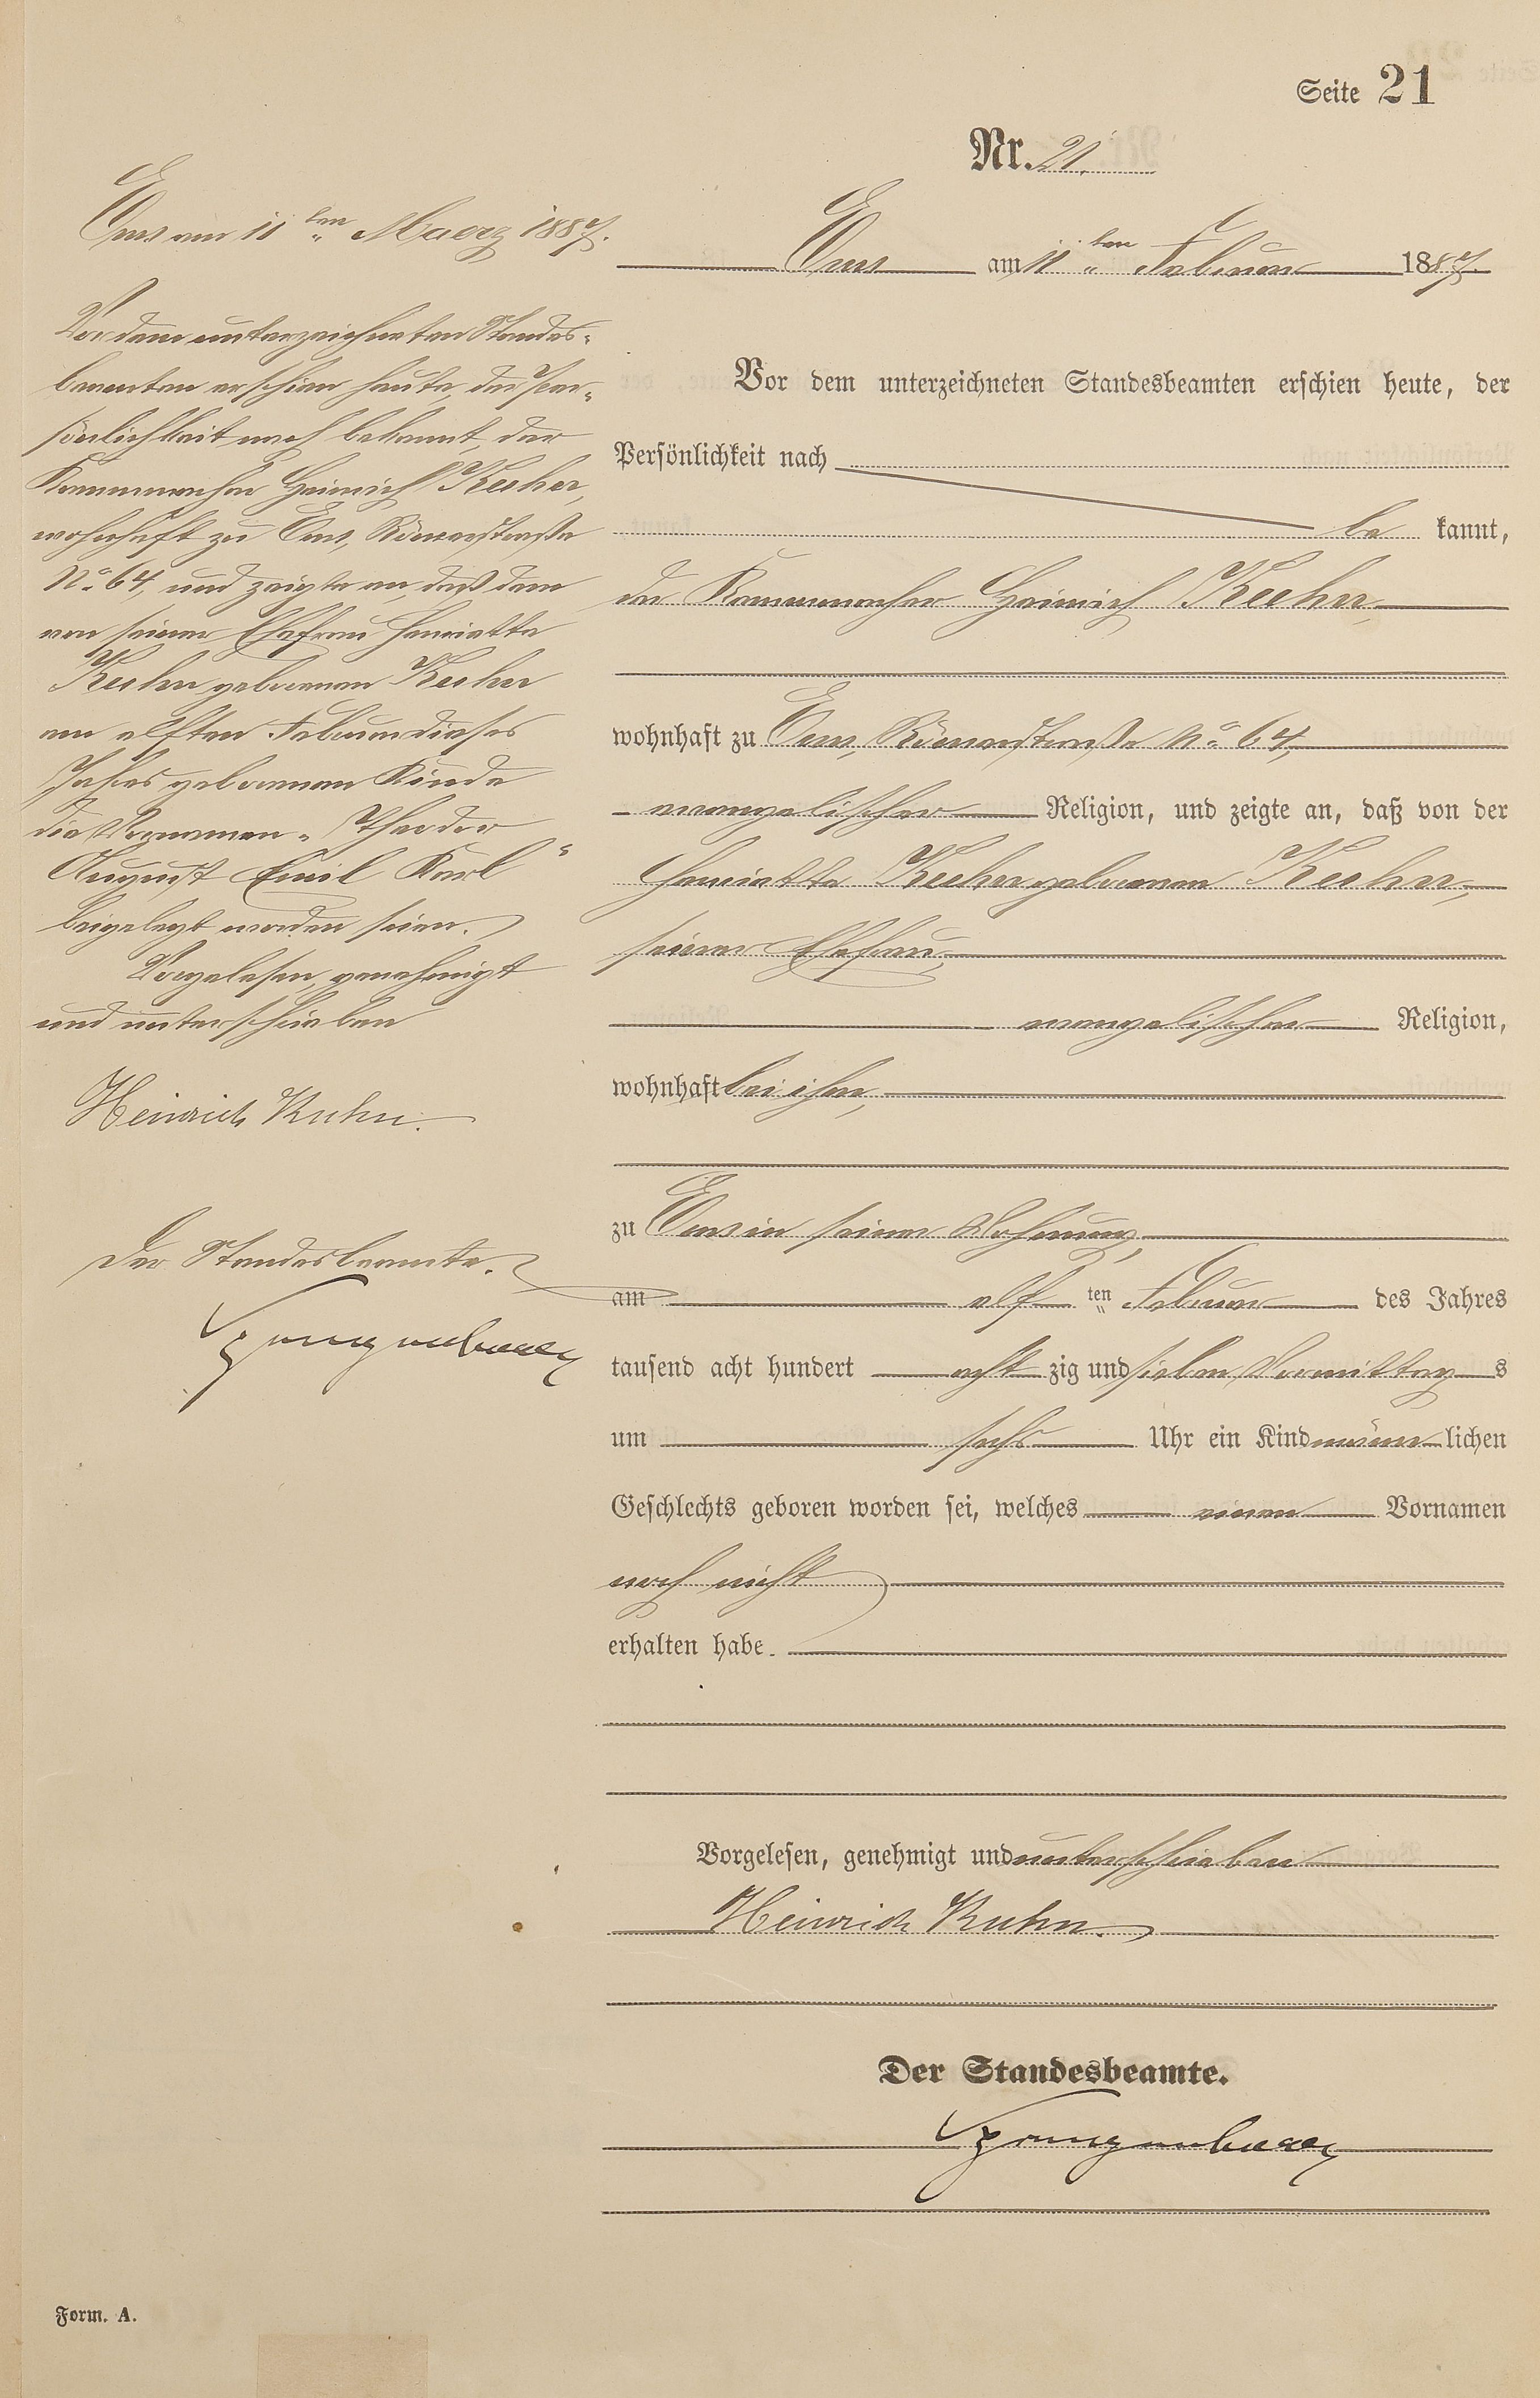 Seite 21
Nr. 21.
Ems am 11ten Februar 1887.
Vor dem unterzeichneten Standesbeamten erschien heute, der
Persönlichkeit nach
be kannt,
der Kammmacher Heinrich Kuhn,
wohnhaft zu Ems, Römerstraße No. 64,
evangelischer Religion, und zeigte an, daß von der
Henriette Kuhn geborenen Kuhn,
seiner Ehefrau,
evangelischer Religion,
wohnhaft bei ihm,
zu Ems in seiner Wohnung,
am elf ten Februar des Jahres
tausend acht hundert acht zig und sieben Vormittag s
um sechs Uhr ein Kind männ lichen
Geschlechts geboren worden sei, welches einen Vornamen
noch nicht
erhalten habe.
Vorgelesen, genehmigt und unterschrieben
Heinrich Kuhn.
Der Standesbeamte.
Ems am 11ten Maerz 1887.
Vor dem unterzeichneten Standes-
beamten erschien heute, der Per-
sönlichkeit nach bekannt, der
Kammmacher Heinrich Kuhn,
wohnhaft zu Ems, Römerstraße
No. 64, und zeigte an, daß dem
von seiner Ehefrau Henriette
Kuhn geborenen Kuhn
am elften Februar dieses
Jahres geborenen Kinde
die Vornamen "Theodor
August Emil Karl"
beigelegt worden seien.
Vorgelesen, genehmigt
und unterschrieben
Heinrich Kuhn.
Der Standesbeamte.
Form. A.